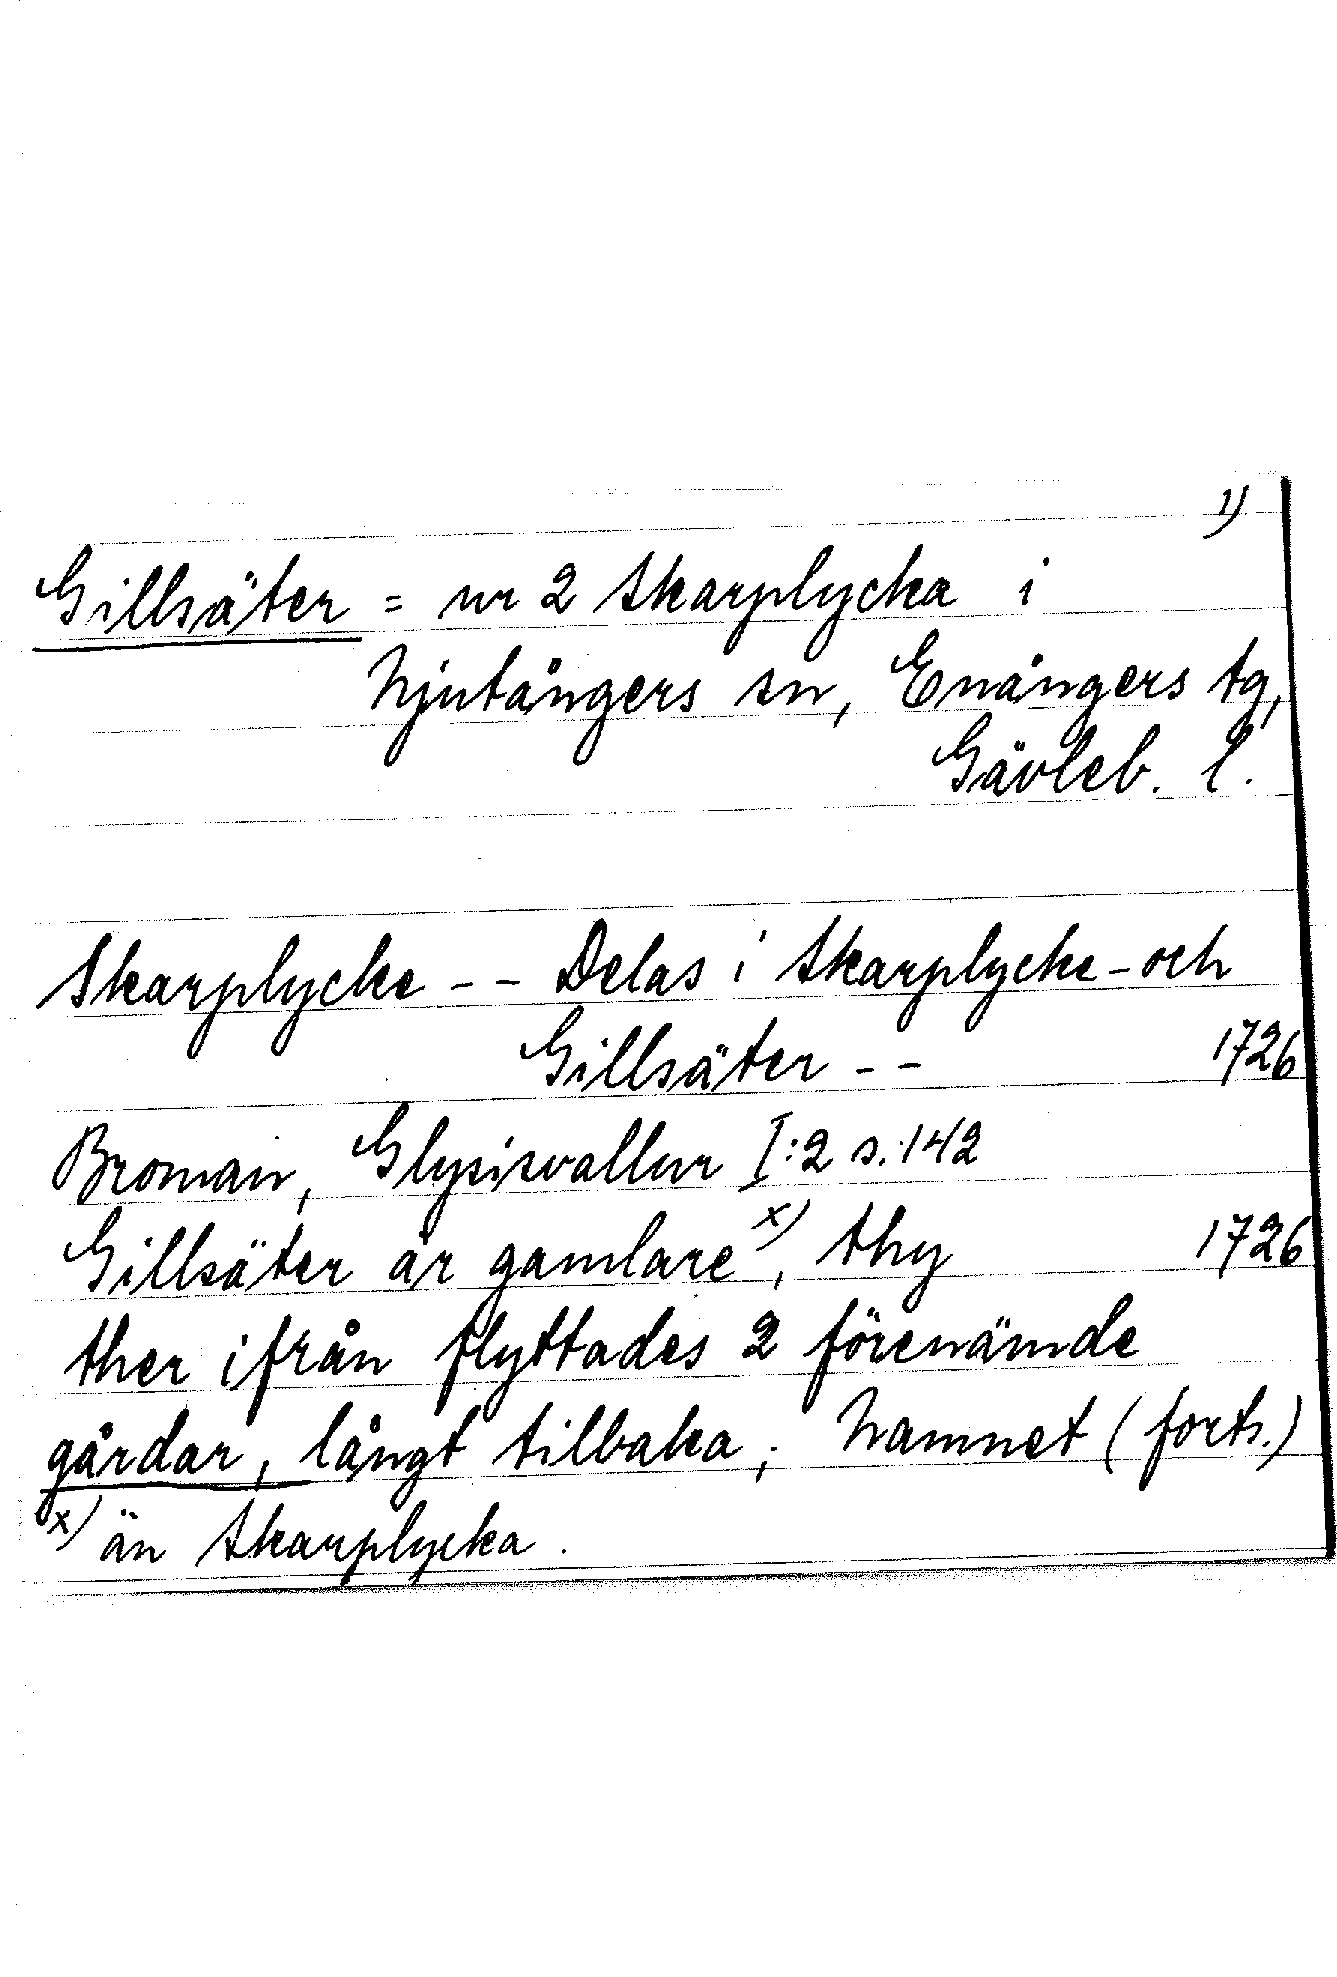 1)
Gillsäter = nr 2 Skarplycka i
Njutångers sn, Enångers tg,
Gävleb. l.
Skarplycke -- Delas i Skarplycke - och
Gillsäter -- 1726
Broman, Glysisvallur I:2 s. 142
Gillsäter är gamlare x), thy 1726
ther ifrån flyttades 2 förenämde
gårdar, långt tilbaka; Namnet (forts.)
x) än Skarplycka.